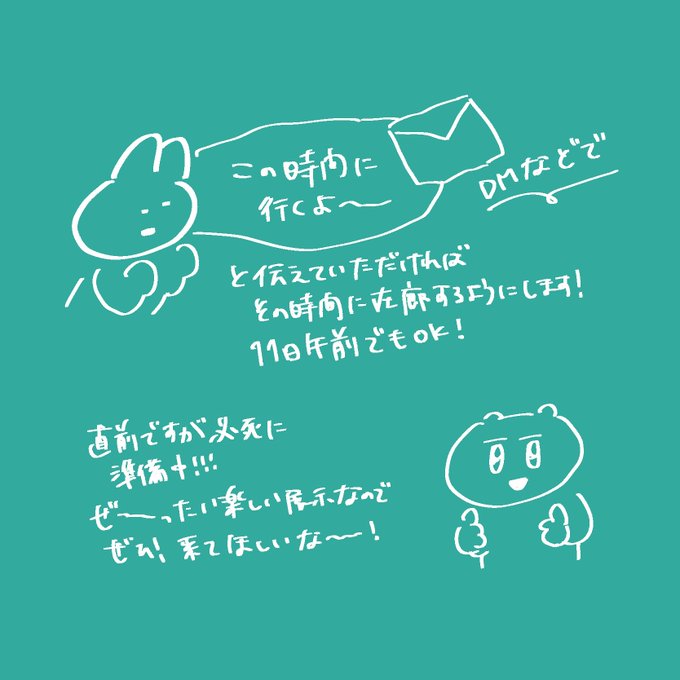 この時間に
行くよ〜
DMなどで
と伝えていただければ
その時間に在廊するようにします!
11日午前でもOK!
直前ですが必死に
準備中!!!
ぜ〜ったい楽しい展示なので
ぜひ!来てほしいな〜!